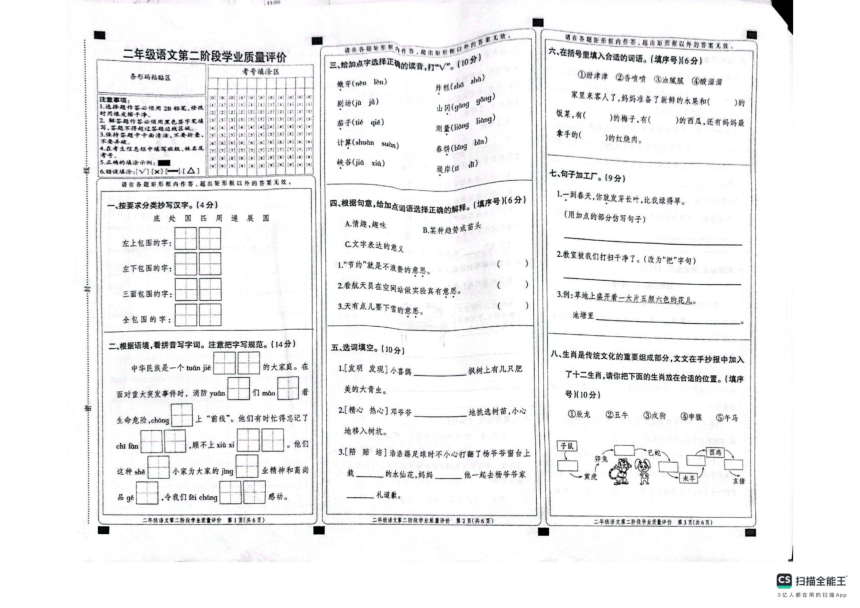 二年级语文第二阶段学业质量评价
条形码粘贴区
考号填涂区
注意事项：
1.选择题作答必须用2B铅笔,修改
时用橡皮擦干净。
2.解答题作答必须用黑色签字笔填
写,答题不得超过答题边线区域。
3.保持答题卡卡面清洁,不要折叠,
不要弄破。
4.在考生信息框中填写班级、姓名及
考号。
5.正确的填涂示例:
6.错误填涂:[√][×][—][△]
请在各题矩形框内作答,超出矩形框以外的答案无效。
一、按要求分类抄写汉字。(4分)
底 处 国 匹 周 递 展 园
左上包围的字:
左下包围的字:
三面包围的字:
全包围的字:
二、根据语境,看拼音写字词。注意把字写规范。(14分)
中华民族是一个 tuán jié 的大家庭。在
面对重大突发事件时,消防 yuán 们 mào 着
生命危险,chōng 上“前线”。他们有时忙得忘记了
chī fàn ,顾不上 xiū xi 。他们
这种 shě 小家为大家的 jìng 业精神和高尚
品 gé ,令我们 fēi cháng 感动。
二年级语文第二阶段学业质量评价 第1页(共6页)
请在各题矩形框内作答,超出矩形框以外的答案无效。
三、给加点字选择正确的读音,打“√”。(10分)
嫩芽(nèn lèn) 炸糕(zhá zhà)
剧场(jù jù) 山冈(gāng gǎng)
茄子(tié qié) 测量(liáng liàng)
计算(shuàn suàn) 春饼(bǐng bǐn)
峡谷(jiá xiá) 堤岸(tí dī)
四、根据句意,给加点词语选择正确的解释。(填序号)(6分)
A.情趣,趣味 B.某种趋势或苗头
C.文字表达的意义
1.“节约”就是不浪费的意思。 ( )
2.看航天员在空间站做实验真有意思。 ( )
3.天有点儿要下雪的意思。 ( )
五、选词填空。(10分)
1.[发明 发现]小喜鹊 枫树上有几只肥
美的大青虫。
2.[精心 热心]邓爷爷 地挑选树苗,小心
地移入树坑。
3.[陪 赔 培]浩浩踢足球时不小心打翻了杨爷爷窗台上
栽 的水仙花,妈妈 他一起去杨爷爷家
礼道歉。
二年级语文第二阶段学业质量评价 第2页(共6页)
请在各题矩形框内作答,超出矩形框以外的答案无效。
六、在括号里填入合适的词语。(填序号)(6分)
①甜津津 ②香喷喷 ③油腻腻 ④酸溜溜
家里来客人了,妈妈准备了新鲜的水果和( )的
饭菜,有( )的梅子,有( )的西瓜,还有妈妈最
拿手的( )的红烧肉。
七、句子加工厂。(9分)
1.一到春天,你就发芽长叶,比我绿得早。
(用加点的部分仿写句子)
2.教室被我们打扫干净了。(改为“把”字句)
3.例:草地上盛开着一大片五颜六色的花儿。
池塘里 。
八、生肖是传统文化的重要组成部分,文文在手抄报中加入
了十二生肖,请你把下面的生肖放在合适的位置。(填序
号)(10分)
①辰龙 ②丑牛 ③戌狗 ④申猴 ⑤午马
子鼠
寅虎
卯兔
巳蛇
未羊
酉鸡
亥猪
二年级语文第二阶段学业质量评价 第3页(共6页)
CS 扫描全能王
3亿人都在用的扫描App